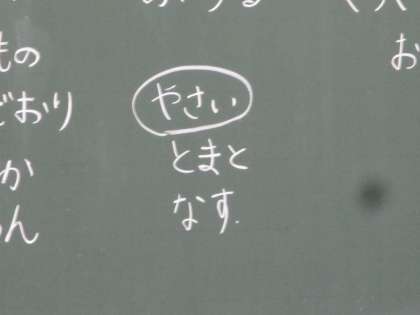 やさい
とまと
なす.
もの
どおり
か
ん
お